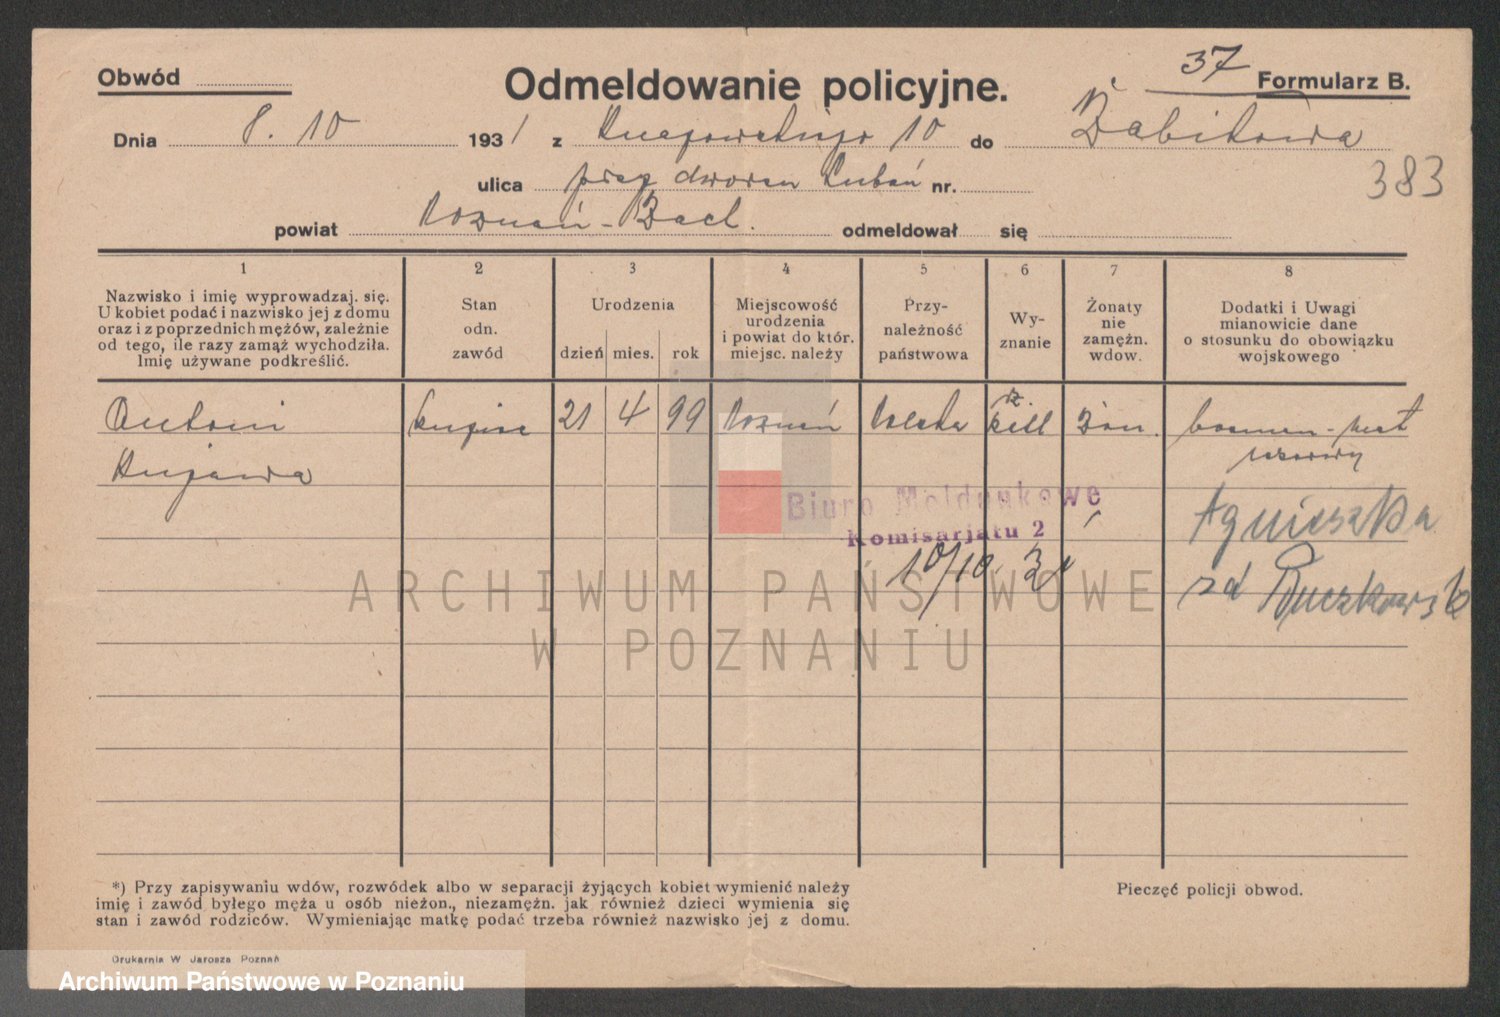 37
Obwód Odmeldowanie policyjne. Formularz B.
Dnia 8. 10 1931 z Knapowskiego 10 do Żabikowa
ulica przy dworcu Luboń nr.
383
powiat Poznań-Zach. odmeldował się
1 2 3 4 5 6 7 8
Nazwisko i imię wyprowadzaj. się.
U kobiet podać i nazwisko jej z domu
oraz i z poprzednich mężów, zależnie
od tego, ile razy zamąż wychodziła.
Imię używane podkreślić.
Stan
odn.
zawód
Urodzenia
dzień mies. rok
Miejscowość
urodzenia
i powiat do któr.
miejsc. należy
Przy-
należność
państwowa
Wy-
znanie
Żonaty
nie
zamężn.
wdow.
Dodatki i Uwagi
mianowicie dane
o stosunku do obowiązku
wojskowego
Antoni kupiec 21 4 99 Poznań Polska rz. katl Żon.
Kujawa rezerwy
Biuro Meldunkowe
Komisarjatu 2
10/10. 31
Agnieszka
zd
ARCHIWUM PAŃSTWOWE
W POZNANIU
*) Przy zapisywaniu wdów, rozwódek albo w separacji żyjących kobiet wymienić należy
imię i zawód byłego męża u osób nieżon., niezamężn. jak również dzieci wymienia się
stan i zawód rodziców. Wymieniając matkę podać trzeba również nazwisko jej z domu.
Pieczęć policji obwod.
Drukarnia W Jarosza Poznań
Archiwum Państwowe w Poznaniu